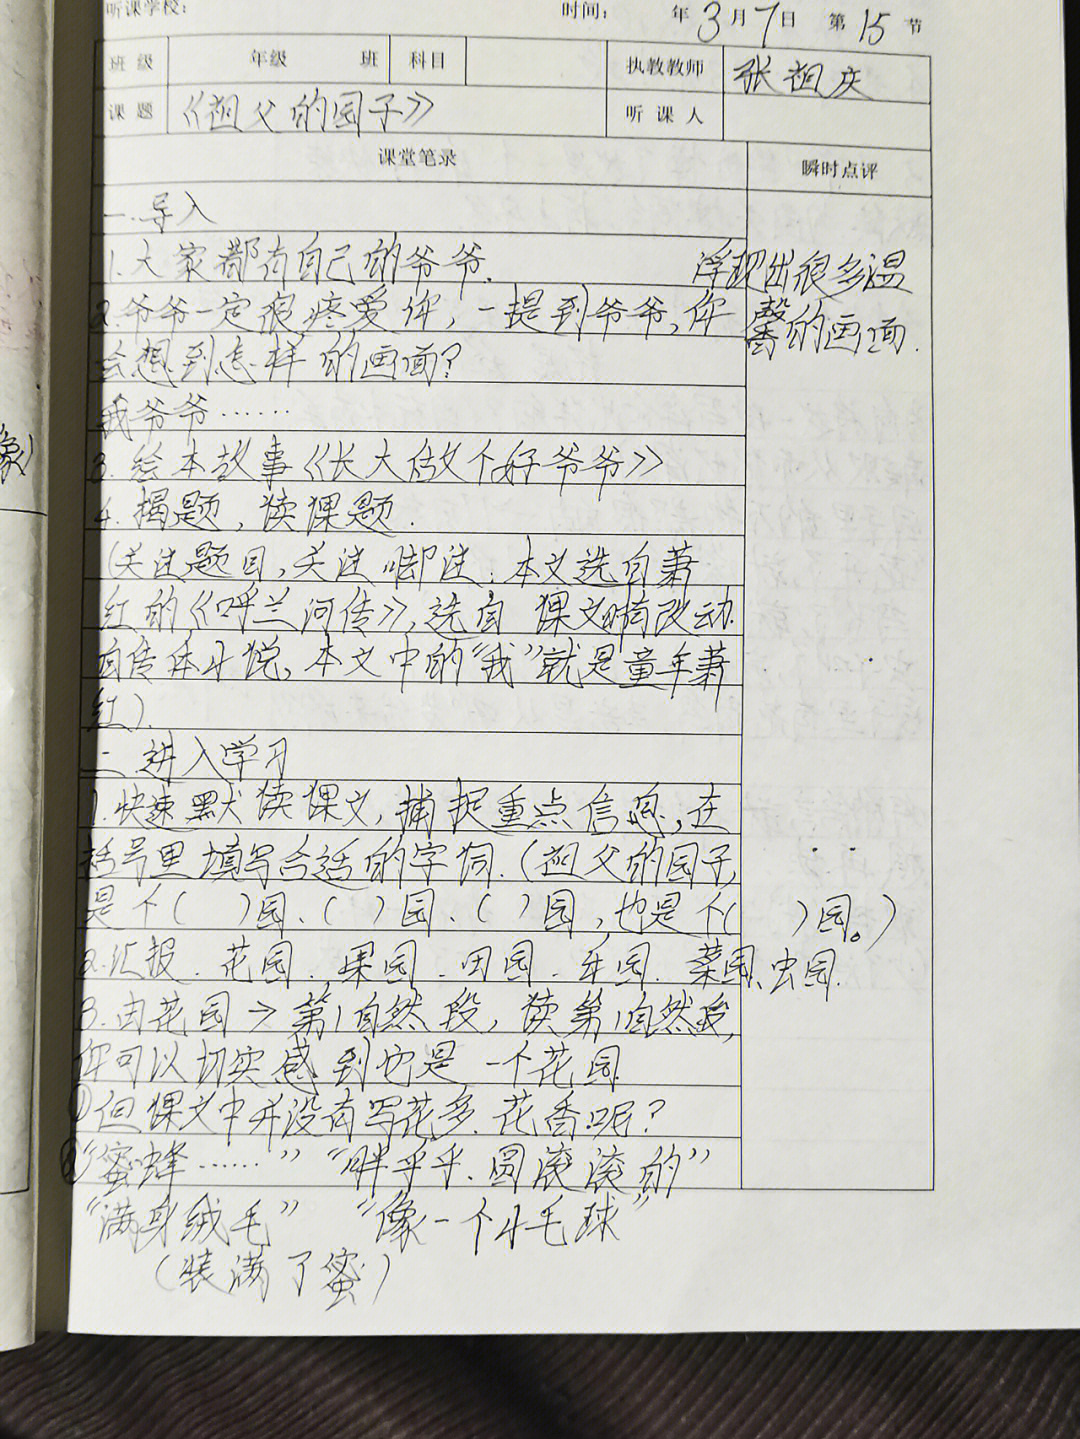 听课学校:　时间:　年 3 月 7 日 第 15 节
班级　年级　班　科目　执教教师　张祖庆
课题　《祖父的园子》　听课人
课堂笔录　瞬时点评
一.导入
1.大家都有自己的爷爷.　浮现出很多温
2.爷爷一定很疼爱你,一提到爷爷,你　馨的画面.
会想到怎样的画面?
我爷爷……
3.绘本故事《长大做个好爷爷》
4.揭题,读课题.
(关注题目,关注脚注:本文选自萧
红的《呼兰河传》,选自 课文略有改动.
自传体小说,本文中的“我”就是童年萧
红).
二 进入学习
1.快速默读课文,捕捉重点信息,在
括号里填写合适的字词.(祖父的园子,
是个( )园、( )园、( )园,也是个( )园。)
2.汇报.花园.果园.田园.乐园.菜园、虫园.
3.由花园→第1自然段,读第1自然段,
你可以切实感到也是一个花园
①但课文中并没有写花多.花香呢?
②“蜜蜂……”“胖乎乎.圆滚滚的”
“满身绒毛”“像一个小毛球”
(装满了蜜)
象)